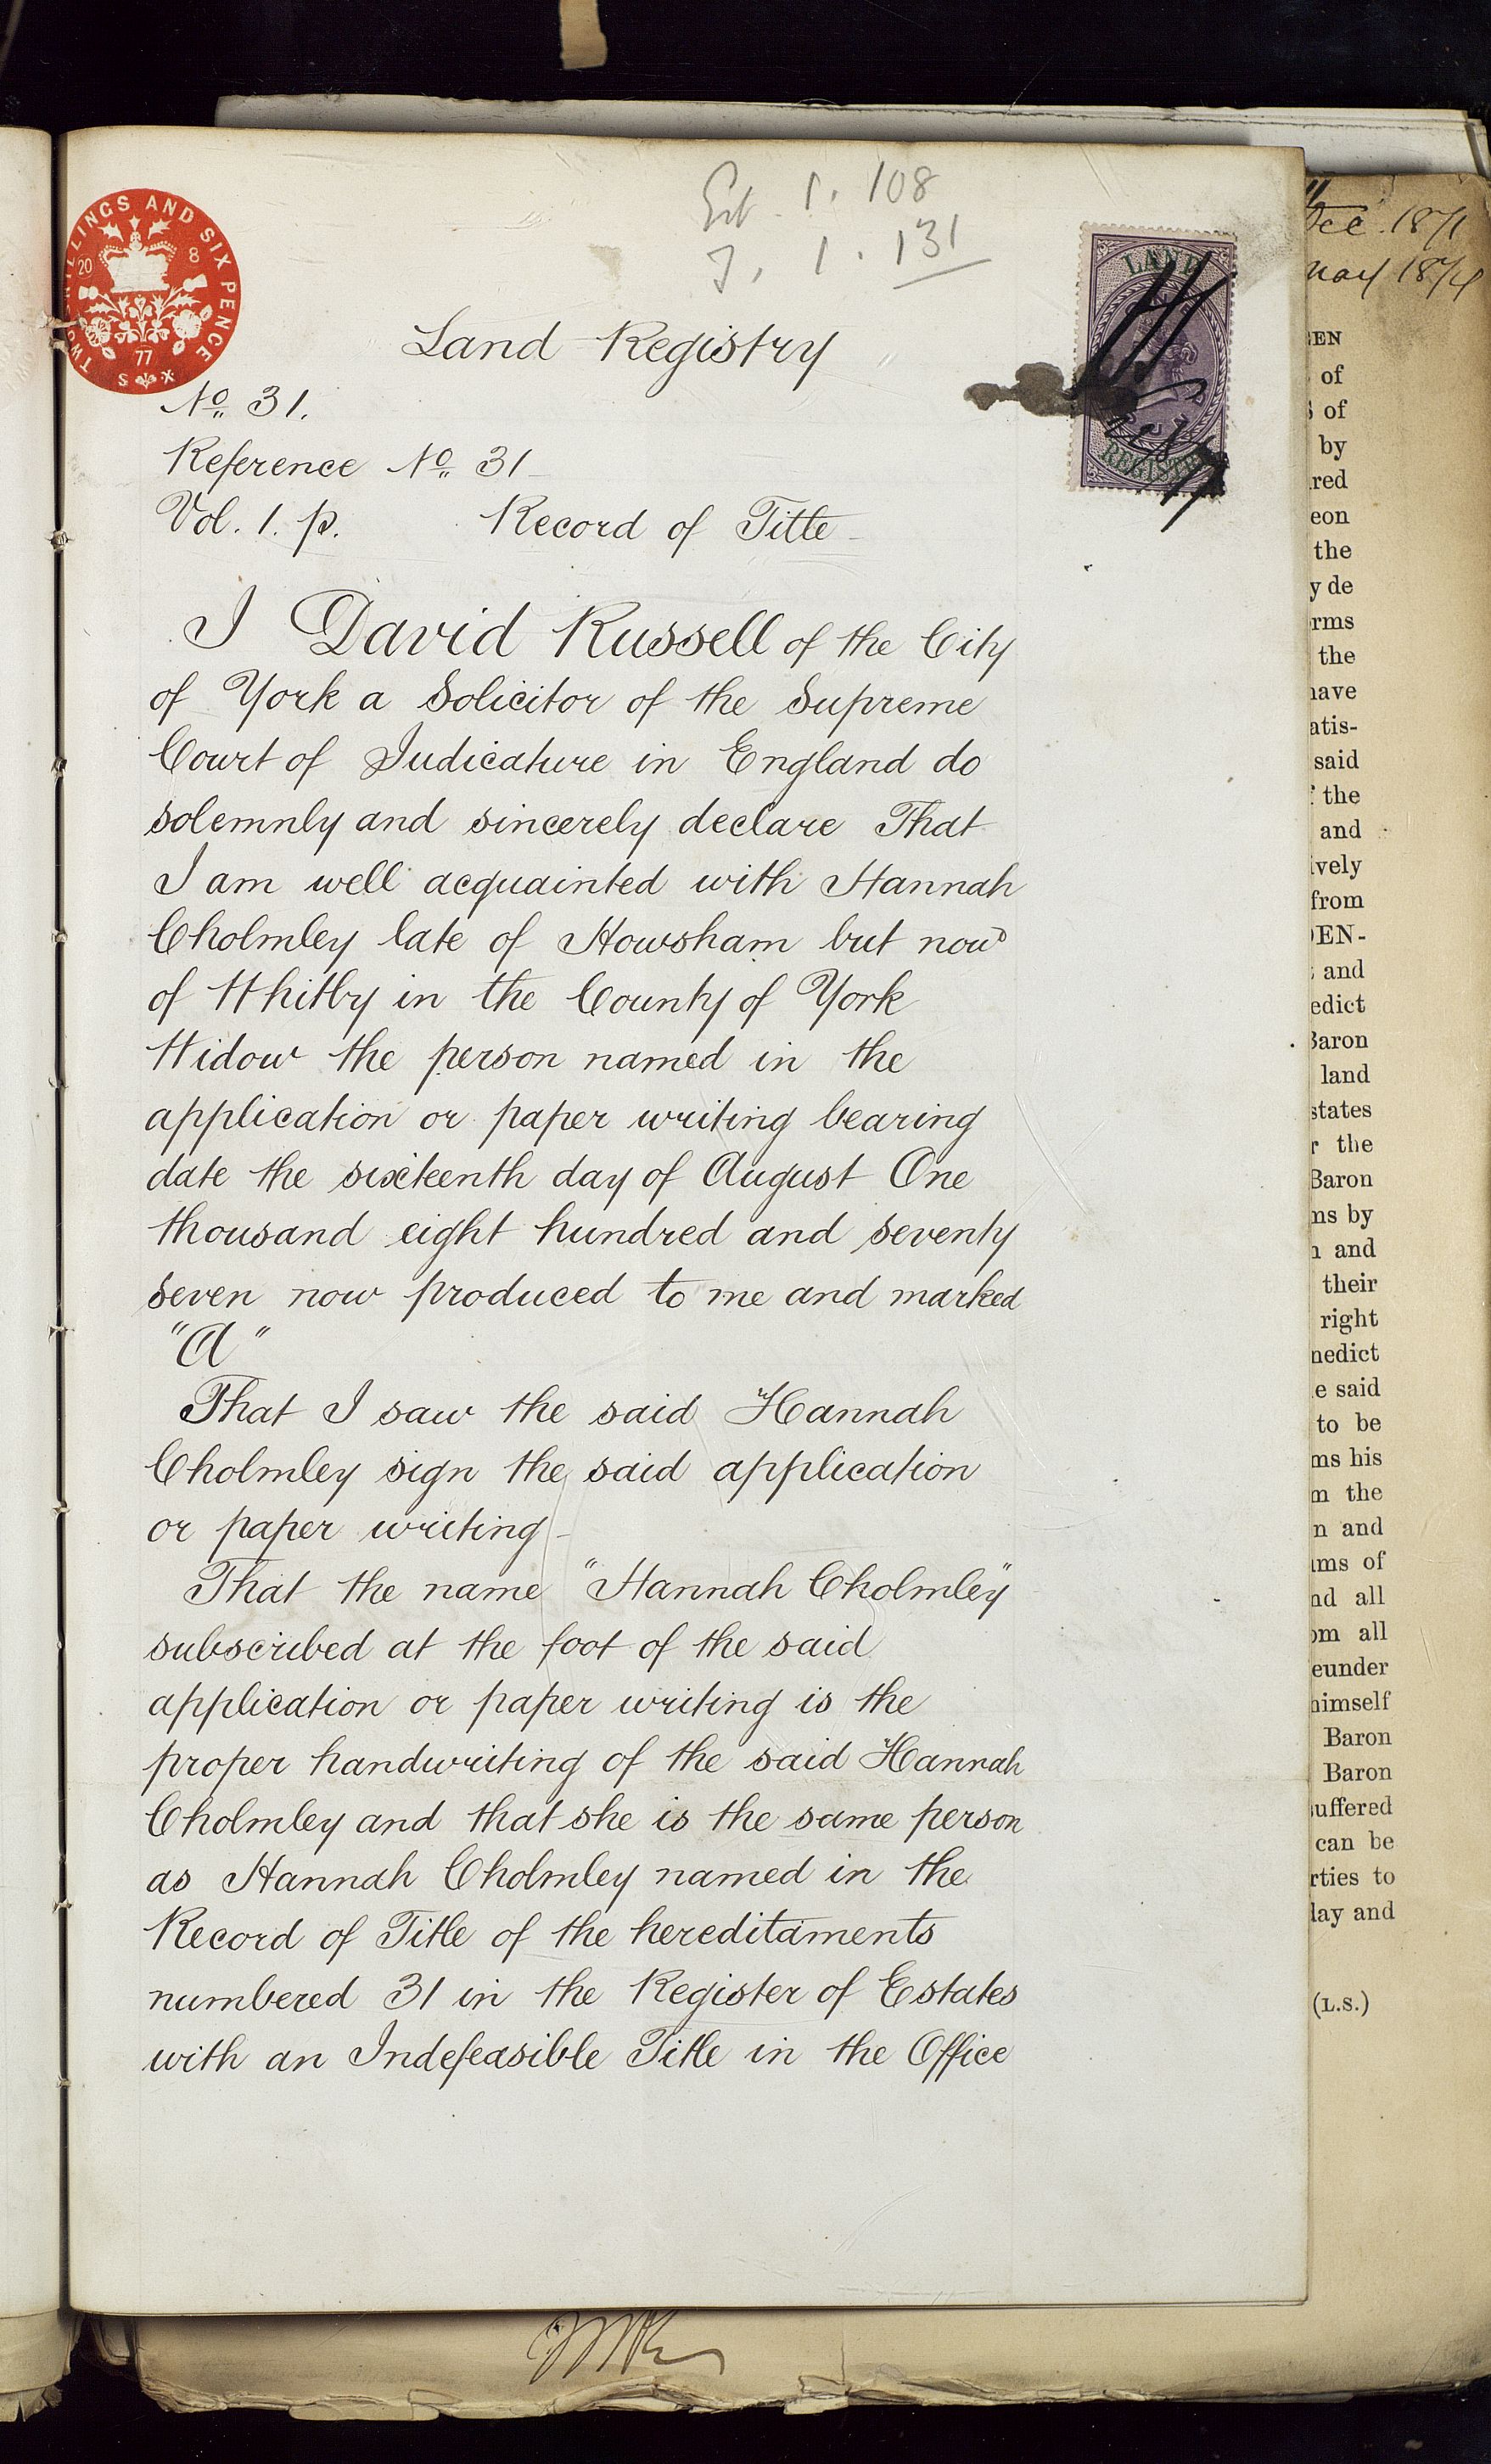 Est. 1. 108
J. 1. 131
TWO SHILLINGS AND SIX PENCE
20 8
77
LAND
REGISTRY
Land Registry
No. 31.
Reference No. 31
Vol. 1. p. Record of Title
I David Russell of the City
of York a Solicitor of the Supreme
Court of Judicature in England do
solemnly and sincerely declare That
I am well acquainted with Hannah
Cholmley late of Howsham but now
of Whitby in the County of York
Widow the person named in the
application or paper writing bearing
date the sixteenth day of August One
thousand eight hundred and seventy
seven now produced to me and marked
"A"
That I saw the said Hannah
Cholmley sign the said application
or paper writing
That the name "Hannah Cholmley"
subscribed at the foot of the said
application or paper writing is the
proper handwriting of the said Hannah
Cholmley and that she is the same person
as Hannah Cholmley named in the
Record of Title of the hereditaments
numbered 31 in the Register of Estates
with an Indefeasible Title in the Office
Dec. 1871
May 1874
of
of
by
the
y de
the
said
the
and
from
and
Baron
land
the
Baron
ms by
and
their
right
e said
to be
ms his
m the
n and
ms of
nd all
om all
eunder
himself
Baron
Baron
suffered
can be
rties to
day and
(L.S.)